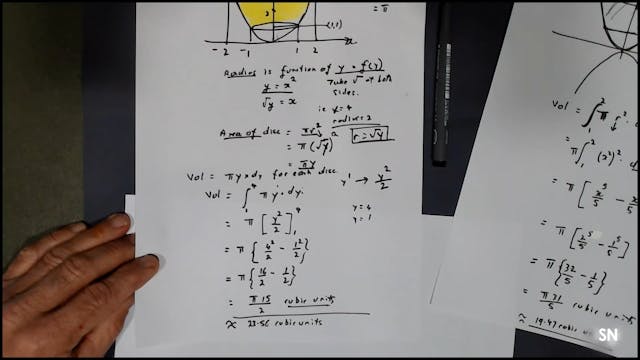 2
(1,1)
-2 -1 1 2 x
= π
Radius is function of y = f(y)
y = x² Take √ of both
√y = x sides.
ie y = 4
radius = 2
Area of disc = πr²
= π(√y)² r = √y
= πy
Vol = πy × dy for each disc.
y¹ → y²/2
Vol = ∫₁⁴ πy · dy.
= π [y²/2]₁⁴ y = 4
y = 1
= π {4²/2 - 1²/2}
= π {16/2 - 1/2}
= π 15/2 cubic units
≈ 23.56 cubic units
2
Vol = ∫₁² π r² ·
= π ∫₁² (x²)² ·
= π [x⁵/5 -
= π [2⁵/5 - 1⁵/5]
= π {32/5 - 1/5}
= π 31/5
≈ 19.47 cubic
SN